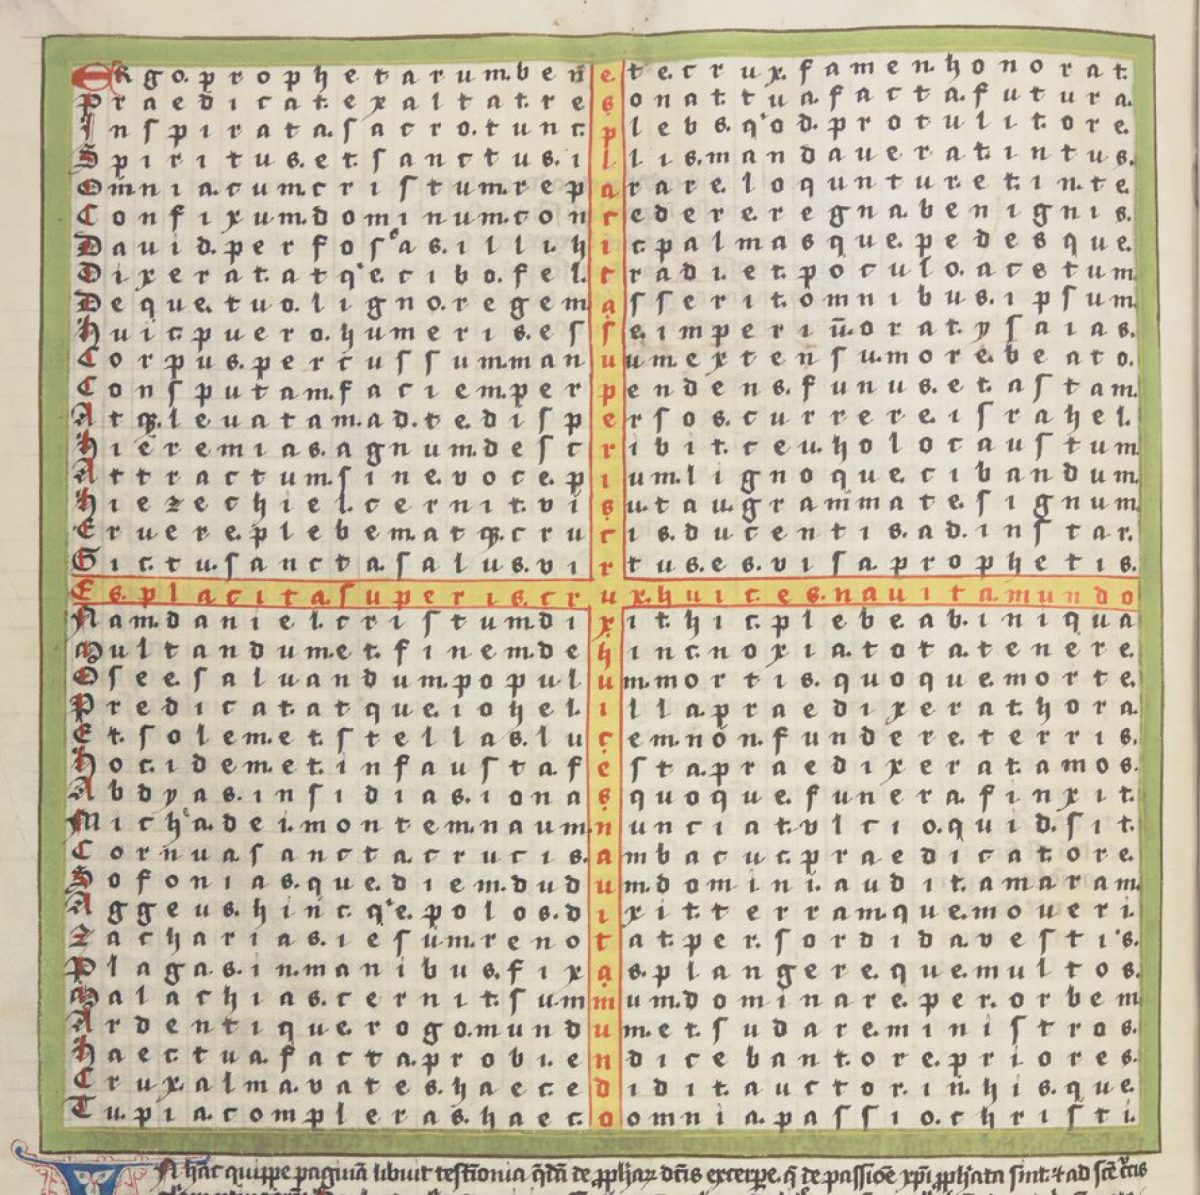 ERgo. prophetarum. bene te. crux. famen. honorat.
Praedicat. exaltat. resonat. tua. facta. futura.
Inspirata. sacro. tunc. plebs. qod. protulit. ore.
Spiritus. et. sanctus. illis. mandauerat. intus.
Omnia. cum. cristum. reprarare. loquntur. et. in. te.
Confixum. dominum. concedere. regna. benignis.
Dauid. perfosẽas. illi. hic. palmasque. pedesque.
Dixerat. atq̃e. cibo. fel. tradi. et. poculo. acetum
Deque. tuo. ligno. regem asserit. omnibus. ipsum
huic. puero. humeris. esse. imperiũ. orat. ysaias.
Corpus. percussum. manuum extensum. ore. beato.
Consputam. faciem. perpendens. funus. et. astam.
Atqꝫ. leuatam. ad. te. dispersos. currere. israhel.
hieremias. agnum. describit. ceu. holocaustum
Attractum. sine. voce. pium. lignoque. cibandum.
hiezechiel. cernit. visutau. grammate. signum
Eruere. plebem. atqꝫ. crucis. ducentis. ad. instar.
Sic. tu. sancta. salus. virtus. es. visa. prophetis.
Es. placita. superis. crux. huic. es. nauita. mundo
Nam. daniel. cristum. dixit. hic. plebe. ab. iniqua
Multandum. et. finem. dehinc. noxia. tota. tenere.
Osee. saluandum. populum. mortis. quoque. morte.
Predicat. atque. iohel. illa. praedixerat. hora.
Et. solem. et. stellas. lucem. non. fundere. terris.
hoc. idem. et. infausta. festa. praedixerat. amos.
Abdyas. insidias. ionas quoque. funera. finxit.
Michea. dei. montem. naum. nunciat. vlcio. quid. sit.
Cornua. sancta. crucis. ambacuc. praedicat. ore.
Sofonias. que. diem. dudum. domini. audit. amaram.
Aggeus. hinc. q̃e. polos. dixit. terramque. moueri.
Zacharias. iesum. renotat. per. sordida. vestis.
Plagas. in. manibus. fixas. plangere. que. multos.
Malachias. cernit. summum. dominare. per. orbem
Ardentique. rogo. mundum. et. sudare. ministros.
haec. tua. facta. probi. en dicebant. ore. priores.
Crux. alma. vates. haec. edidit. auctor. in. his. que.
Tu. pia. compleras. haec. o omnia. passio. christi.
IN hac quippe pagina libuit